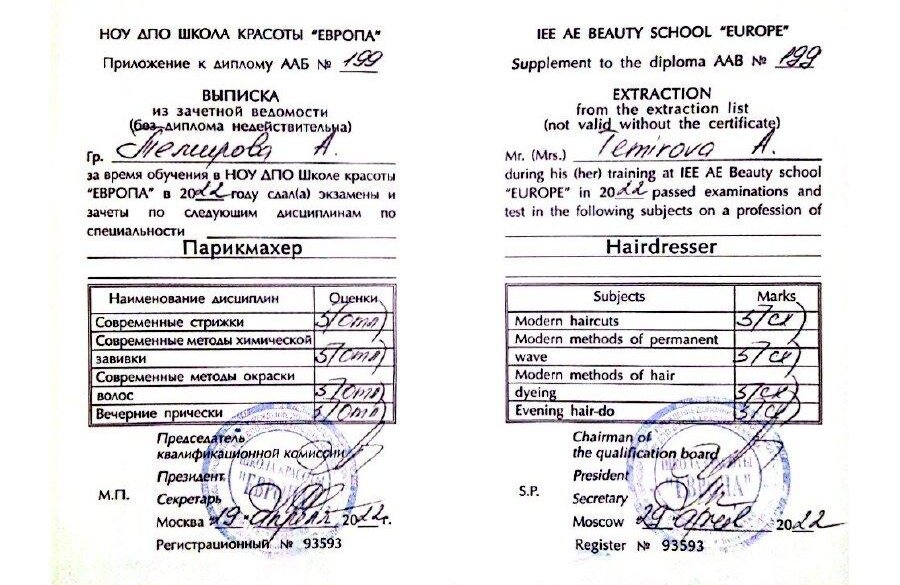 НОУ ДПО ШКОЛА КРАСОТЫ "ЕВРОПА"
Приложение к диплому ААБ № 199
ВЫПИСКА
из зачетной ведомости
(без диплома недействительна)
Гр. Темирова А.
за время обучения в НОУ ДПО Школе красоты
"ЕВРОПА" в 2022 году сдал(а) экзамены и
зачеты по следующим дисциплинам по
специальности
Парикмахер
Наименование дисциплин Оценки
Современные стрижки 5/отл)
Современные методы химической
завивки 5/отл)
Современные методы окраски
волос 5/отл)
Вечерние прически 5/отл)
Председатель
квалификационной комиссии
Президент
М.П. Секретарь
Москва "29" апреля 2022 г.
Регистрационный № 93593
ШКОЛА КРАСОТЫ
"ЕВРОПА"
IEE AE BEAUTY SCHOOL "EUROPE"
Supplement to the diploma AAB № 199
EXTRACTION
from the extraction list
(not valid without the certificate)
Mr. (Mrs.) Temirova A.
during his (her) training at IEE AE Beauty school
"EUROPE" in 2022 passed examinations and
test in the following subjects on a profession of
Hairdresser
Subjects Marks
Modern haircuts 5/ex)
Modern methods of permanent
wave 5/ex)
Modern methods of hair
dyeing 5/ex)
Evening hair-do 5/ex)
Chairman of
the qualification board
President
S.P. Secretary
Moscow 29 April 2022
Register № 93593
ШКОЛА КРАСОТЫ
"ЕВРОПА"